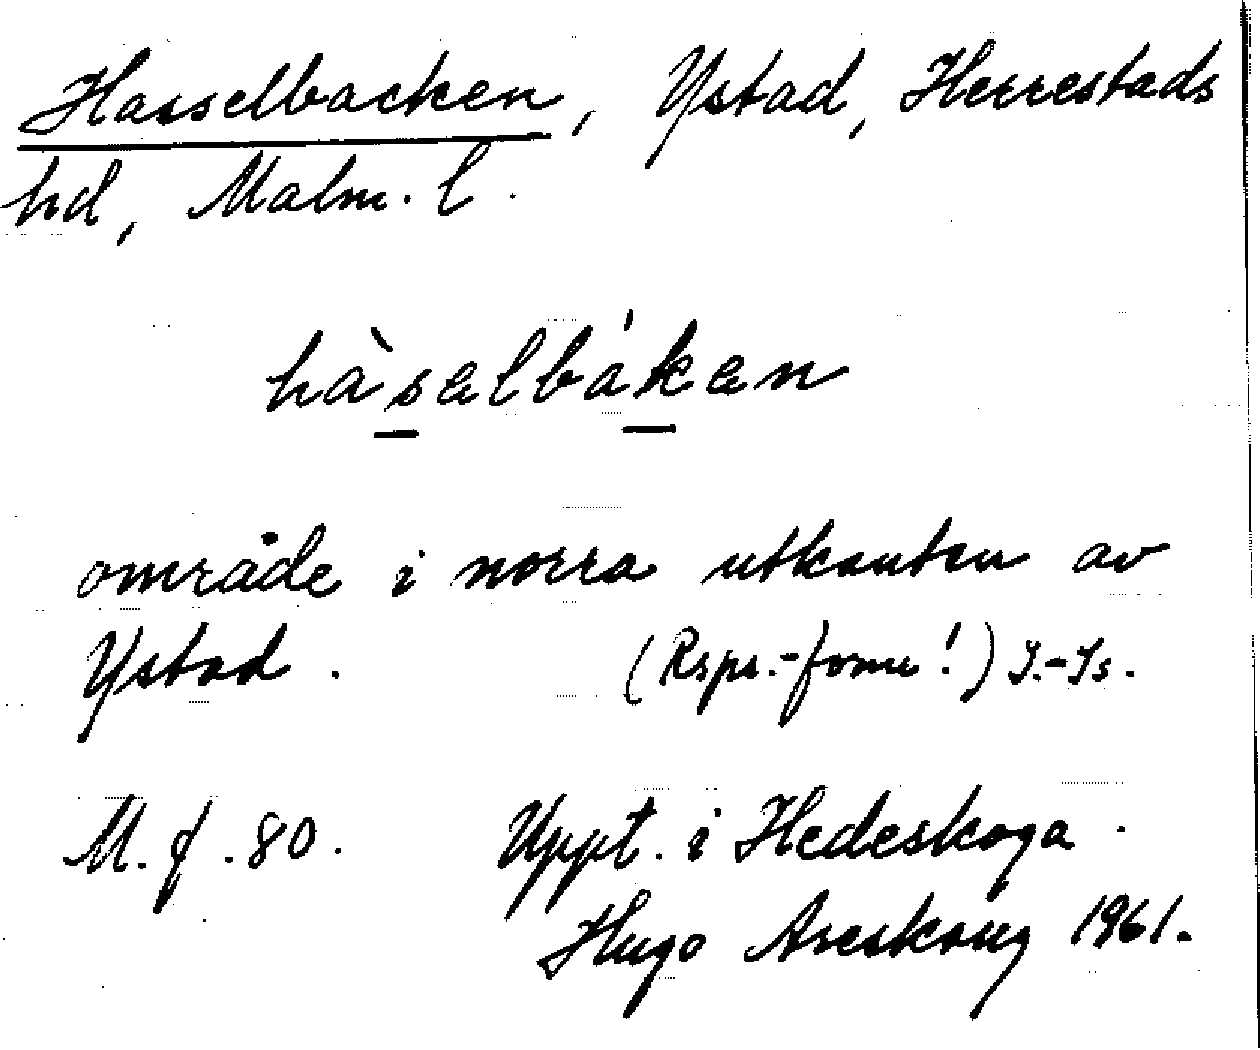 Hasselbacken, Ystad, Herrestads
hd, Malm. l.
hàsælbákæn
område i norra utkanten av
Ystad. (Rspr.-form!) I.-Is.
M. f. 80. Uppt. i Hedeskoga.
Hugo Areskoug 1961.